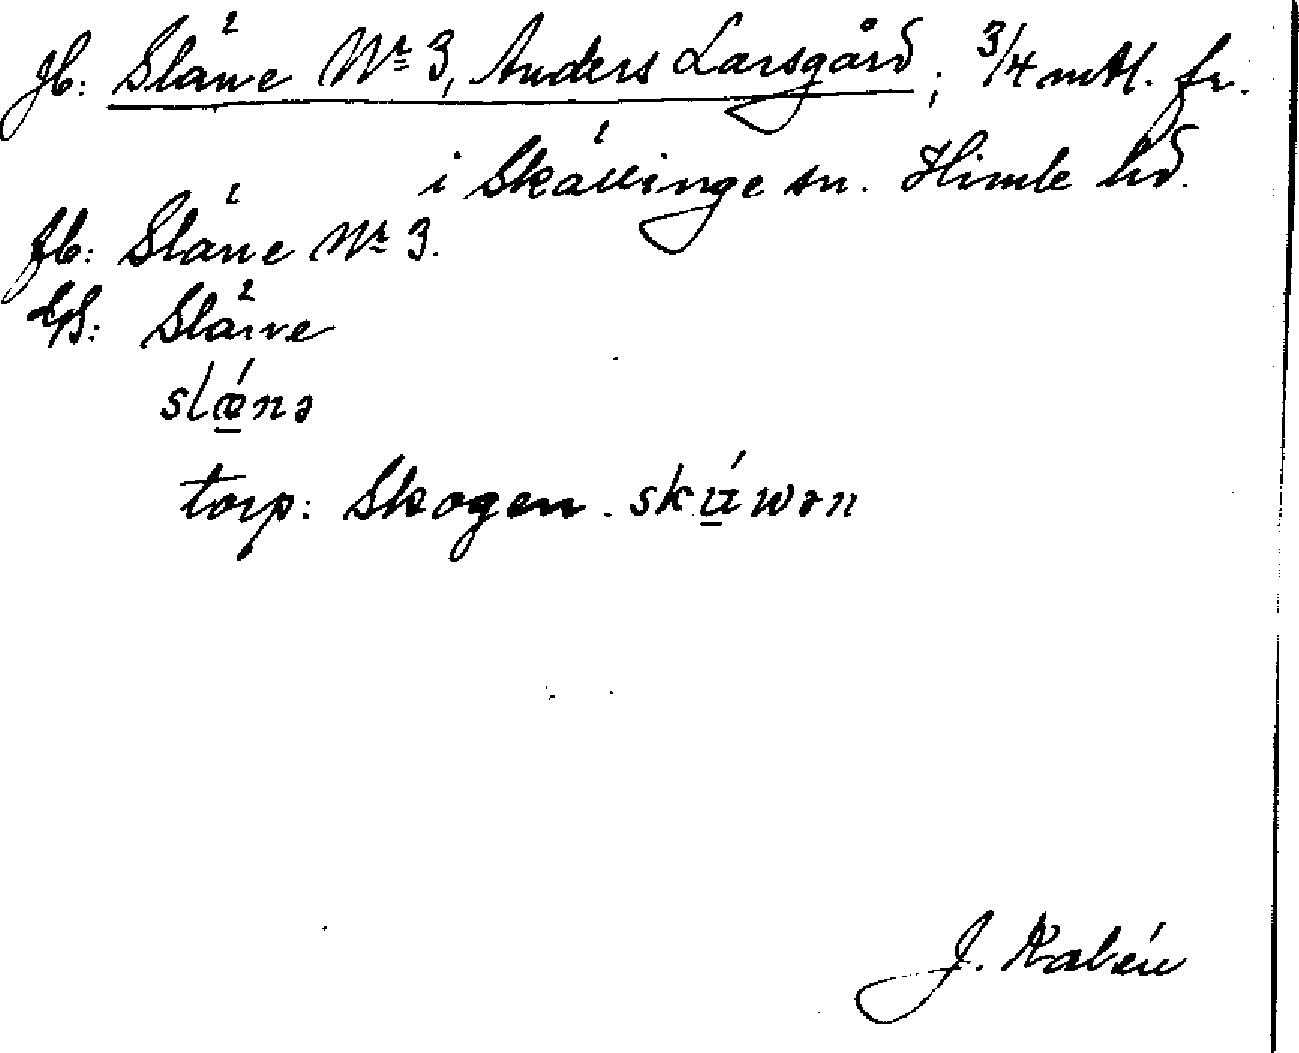 Jb: Släne No 3, Anders Larsgård; 3/4 mtl. fr.
i Skällinge sn. Himle hd.
fb: Släne Nr 3.
GS: Släne
slǽnə
torp: Skogen. skúwən
J. Kalén